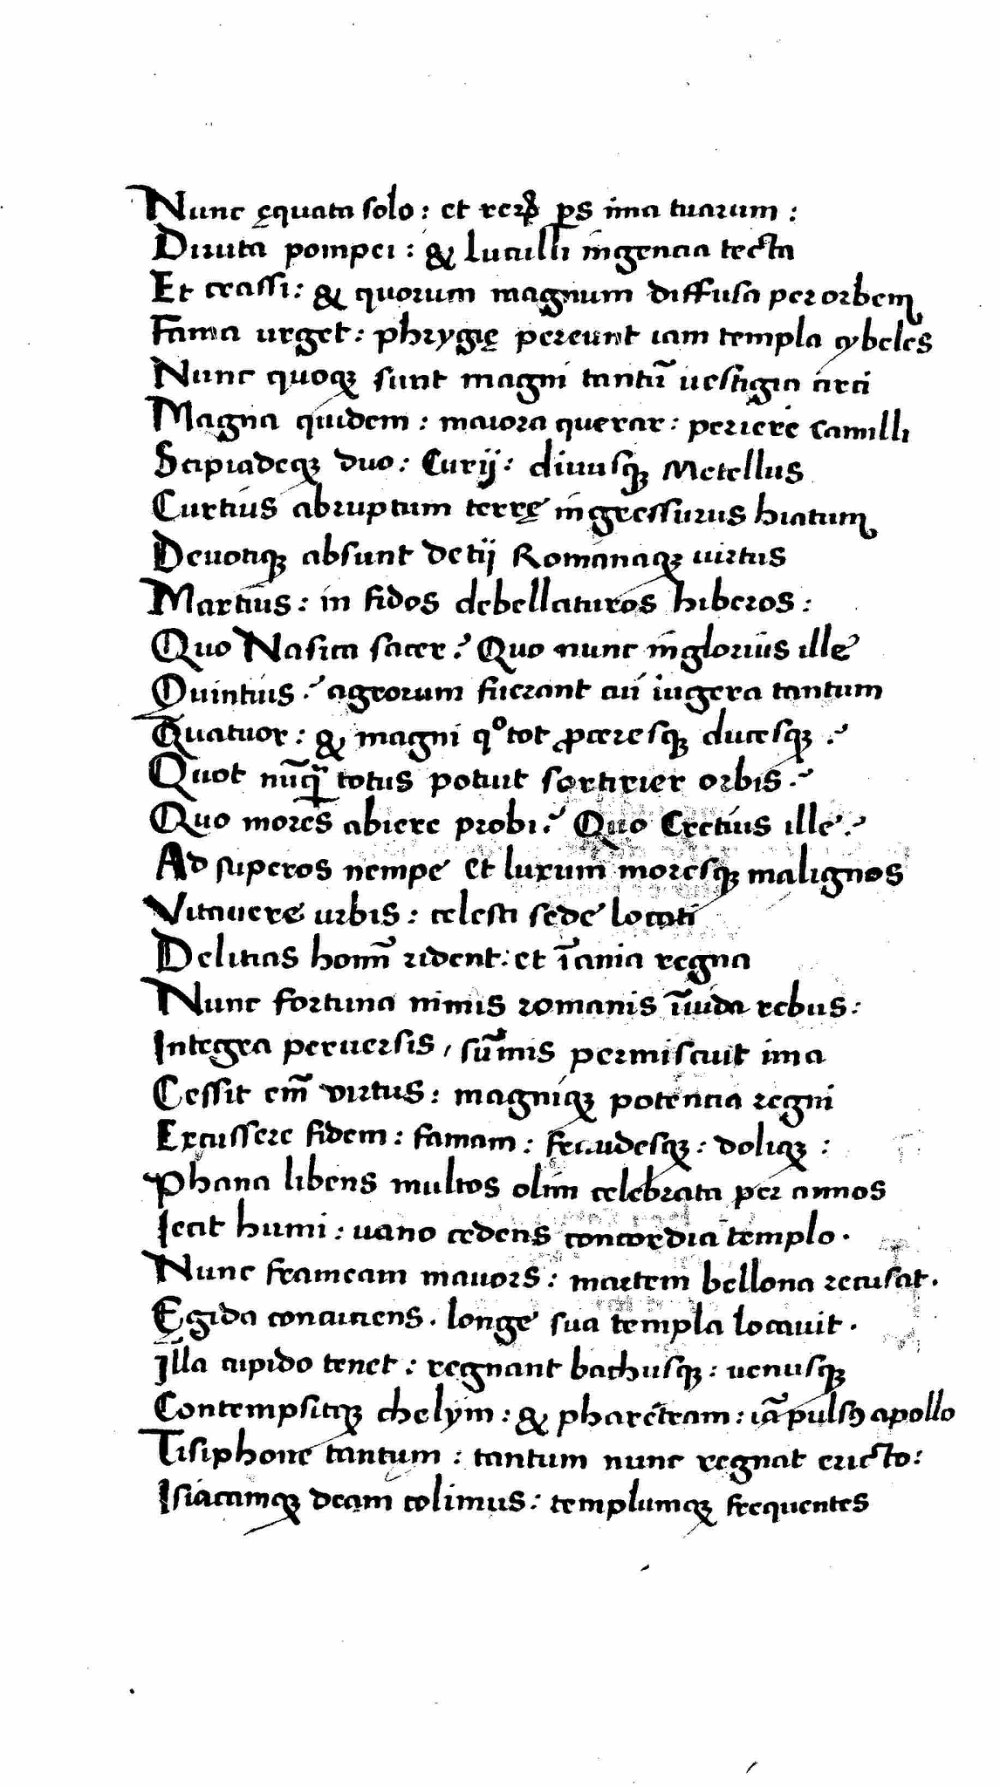 Nunc ęquata solo : et rerꝝ ꝑs ima tuarum :
Diruta pompei : & luculli ingencia tecta
Et crassi : & quorum magnum diffusa per orbem
Fama urget : phrygię pereunt iam templa cybeles
Nunc quoqꝫ sunt magni tantū uestigia circi
Magna quidem : maiora querar : periere Camilli
Scipiadeqꝫ duo : Curij : diuusqꝫ Metellus
Curtius abruptum terrę ingressurus hiatum
Deuotiqꝫ absunt detij Romanaqꝫ uirtus
Martius : in fidos debellaturos hiberos :
Quo Nasica sacer ? Quo nunc inglorius ille
Quintius ? agrorum fuerant cui iugera tantum
Quatuor : & magni qͦ tot ꝓceresqꝫ ducesqꝫ ?
Quot nūqͣ totus potuit sortirier orbis ?
Quo mores abiere probi ? Quo Cretius ille ?
Ad superos nempe et luxum moresqꝫ malignos
Vitauere urbis : celesti sede locati
Delitias homī rident : et īania regna
Nunc fortuna nimis romanis īuida rebus :
Integra peruersis / sūmis permiscuit ima
Cessit em̄ uirtus : magniqꝫ potencia regni
Excussere fidem : famam : fraudesqꝫ : doliqꝫ :
Phana libens multos olim celebrata per annos
Iecit humi : uano cedens concordia templo .
Nunc frameam mauors : martem bellona recusat .
Egida conauiens . longe sua templa locauit .
Illa cupido tenet : regnant bachusqꝫ : uenusqꝫ
Contempsitqꝫ chelym : & pharetram : iā pulsꝰ apollo
Tisiphone tantum : tantum nunc regnat ericto :
Isiacamqꝫ deam colimus : templumqꝫ frequentes